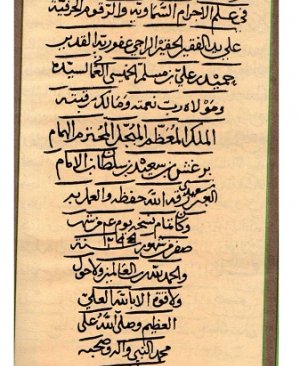 في علم الاجرام السماوية والرقوم الحرفية
على يد الفقير الحقير الراجي عفو ربه القدير
بن علي بن مسلم الخميسي العماني لسيده
ومولاه رب نعمته ومالك رقبته
الملك المعظم المبجل المحترم الامام
برغش بن سعيد بن سلطان بن الامام
الله حفظه والعمل به
وكان تمام نسخه يوم عشر
صفر من شهور سنة
والحمد لله رب العالمين ولا حول
ولا قوة الا بالله العلي
العظيم وصلى الله على
محمد النبي واله وصحبه